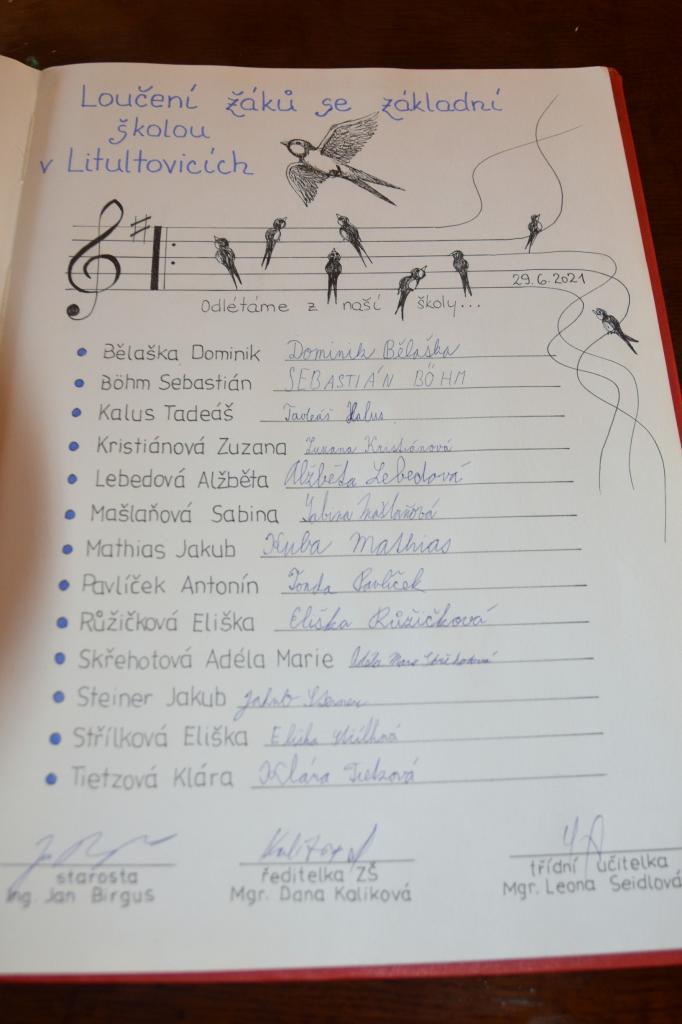 Loučení žáků se základní
školou
v Litultovicích
29.6.2021
Odlétáme z naší školy...
Bělaška Dominik Dominik Bělaška
Böhm Sebastián SEBASTIÁN BÖHM
Kalus Tadeáš Tadeáš Kalus
Kristiánová Zuzana Zuzana Kristiánová
Lebedová Alžběta Alžběta Lebedová
Mašlaňová Sabina Sabina Mašlaňová
Mathias Jakub Kuba Mathias
Pavlíček Antonín Tonda Pavlíček
Růžičková Eliška Eliška Růžičková
Skřehotová Adéla Marie Adéla Marie Skřehotová
Steiner Jakub Jakub Steiner
Střílková Eliška Eliška Střílková
Tietzová Klára Klára Tietzová
starosta ředitelka ZŠ třídní učitelka
Ing. Jan Birgus Mgr. Dana Kalíková Mgr. Leona Seidlová